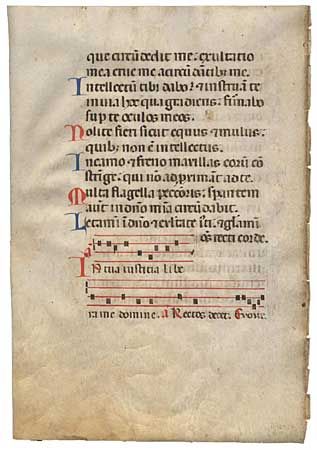 que circũ dedit me. exultatio
mea erue me a circũ dãtibꝫ me.
Intellectũ tibi dabo ⁊ instruã te
in uia hac qua gradieris. firmabo
sup te oculos meos.
Nolite fieri sicut equus ⁊ mulus.
quibꝫ non ẽ intellectus.
In camo ⁊ freno maxillas eorũ cõ
stringe. qui nõ adproximant ad te.
Multa flagella peccatoris. sperantem
autẽ in dño mĩa circũdabit.
Letamini in dño ⁊ exultate iusti. ⁊ glamini
oẽs recti corde.
a
In tua iusticia libe
ra me domine. a Rectos decet. Euouae